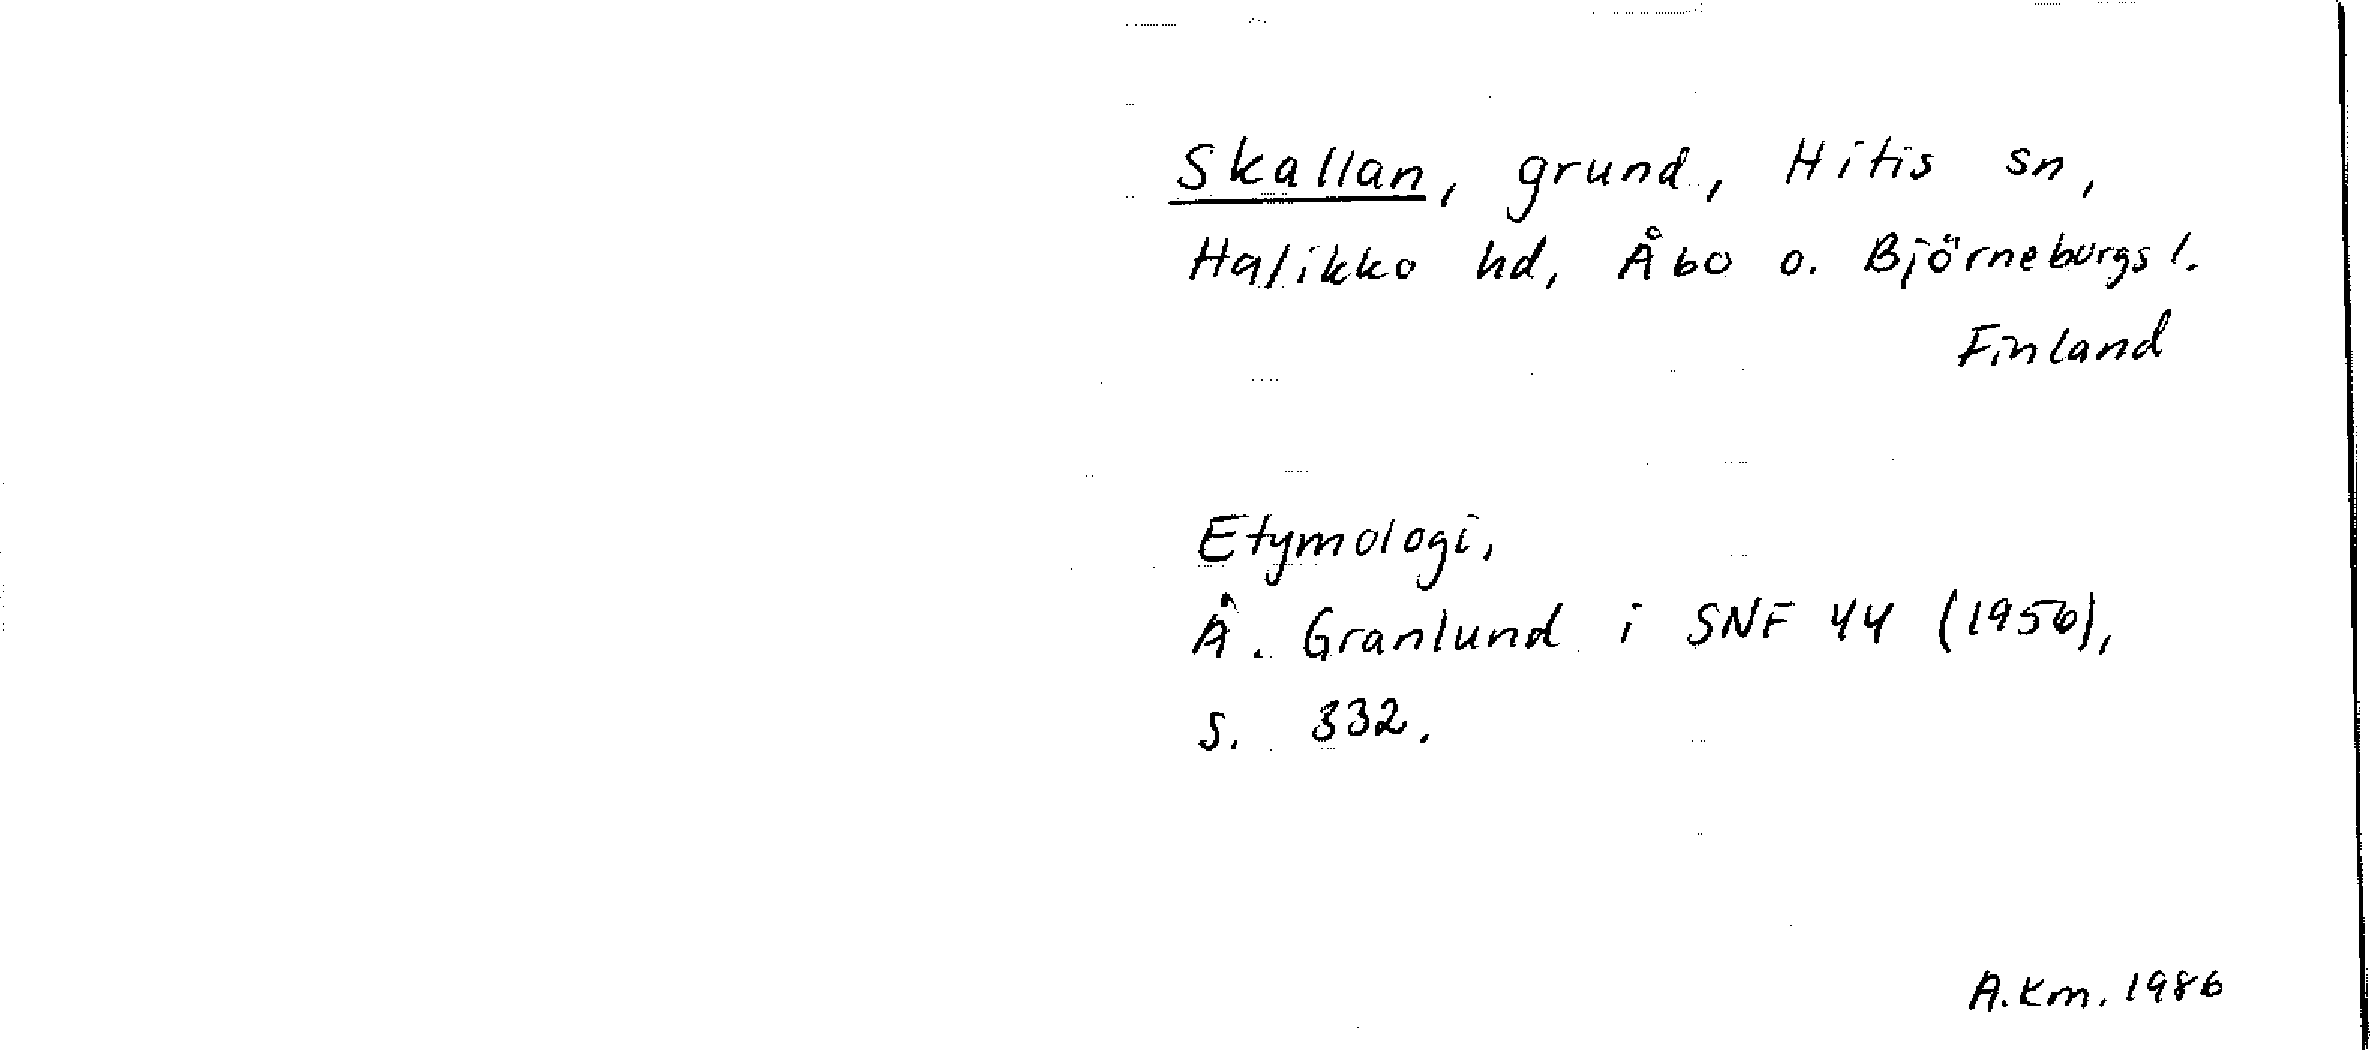 Skallan, grund, Hitis sn,
Halikko hd, Åbo o. Björneborgs l.
Finland
Etymologi,
Å. Granlund i SNF 44 (1956),
s. 332.
A.Km. 1986